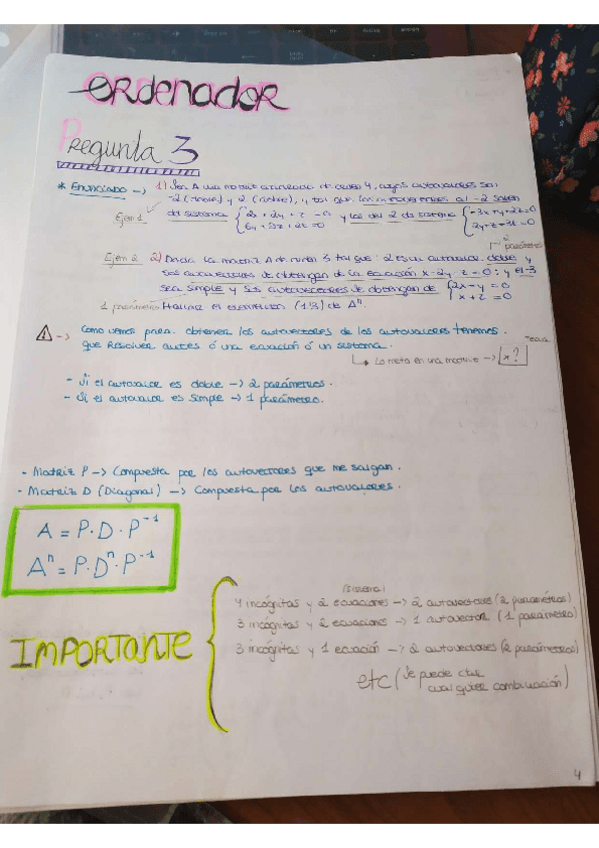 ORdenadoR
Pregunta 3
* Enunciado → 1) Sea A una matriz de orden 4, cuyos autovalores son
-2 (doble) y 2 (doble), y tal que los al -2 salen
Ejem 1 del sistema { 2x + 2y + z = 0 y los del 2 de sistema { -3x + y + 2z = 0
Ejem 2 2) la matriz A de orden 3 tal que: 2 es un autovalor doble y
2 parámetros
sus autovectores se obtengan de la ecuación x-2y-z=0; y el -3
sea simple y sus autovectores se obtengan de { 2x - y = 0
x + z = 0
1 parámetro Hallar el elemento (1,3) de Aⁿ.
⚠ → Como vemos para obtener los autovectores de los autovalores tenemos
que Resolver antes ó una ecuación ó un sistema.
↳ Lo meto en una → x?
- Si el autovalor es doble → 2 parámetros.
- Si el autovalor es simple → 1 parámetro.
- Matriz P → Compuesta por los autovectores que me salgan.
- Matriz D (Diagonal) → Compuesta por los autovalores.
A = P·D·P⁻¹
Aⁿ = P·Dⁿ·P⁻¹
(Sistema)
4 incógnitas y 2 ecuaciones → 2 autovectores (2 parámetros)
3 incógnitas y 2 ecuaciones → 1 autovector (1 parámetro)
IMPORTANTE
3 incógnitas y 1 ecuación → 2 autovectores (2 parámetros)
etc (Se puede dar
cualquier combinación)
4